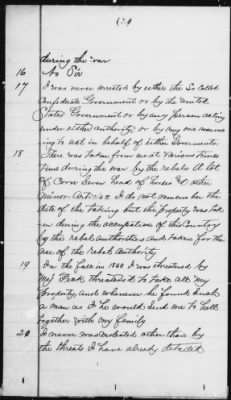 (2)
during the war
16 No Sir
17 I was never arrested by either the So Called
Confederate Government or by the United
States Government or by any person acting
under either authority or by any one assum
ing to act in behalf of either Governments
18 There was taken from me at various times
time during the war by the rebels A lot
of Corn Seven head of horses & other
minor Articles I do not remember the
date of the taking but the property was tak
en during the occupation of this Country
by the rebel authorities and taken for the
use of the rebel Authority
19 In the fall in 1860 I was threatened by
Maj threatened to take all my
property and whenever he found such
a man as I he would send me to hell
together with my family
20 I never was molested other than by
the threats I have already detailed